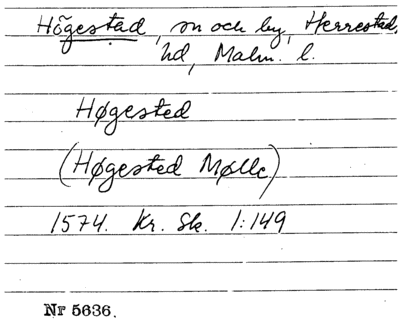 Högestad, sn och by, Herrestad,
hd, Malm. l.
Høgested
(Høgested Mølle)
1574. Kr. Sk. 1:149
Nr 5636.